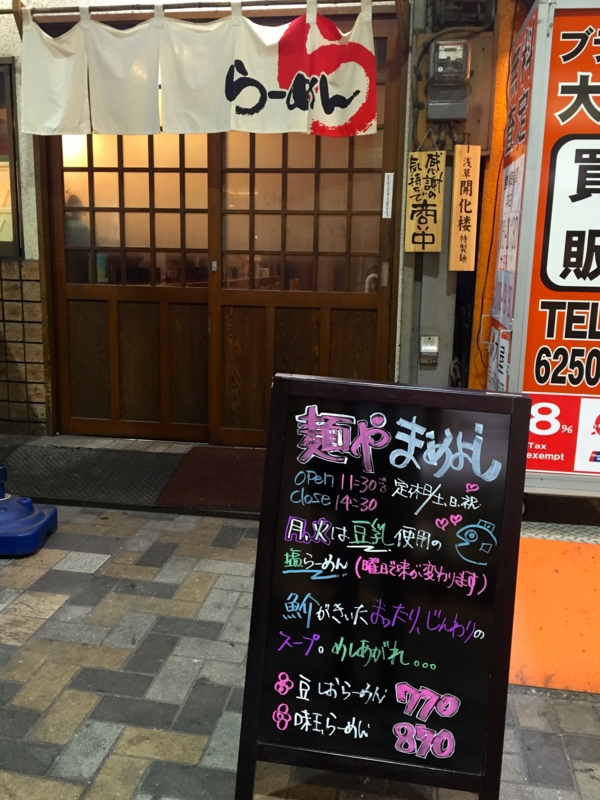 らーめん
感謝の
気持ちで
商い中
浅草 開化楼 特製麺
ブラ
大
買
販
TEL
6250
8%
Tax
exempt
麺や まめよし
OPEN 11:30
Close 14:30
定休日/土、日、祝
月、火は豆乳使用の
塩らーめん (曜日で味が変わります)
魚介がきいたまったり、じんわりの
スープ。めしあがれ...
豆しおらーめん 770
味玉らーめん 870